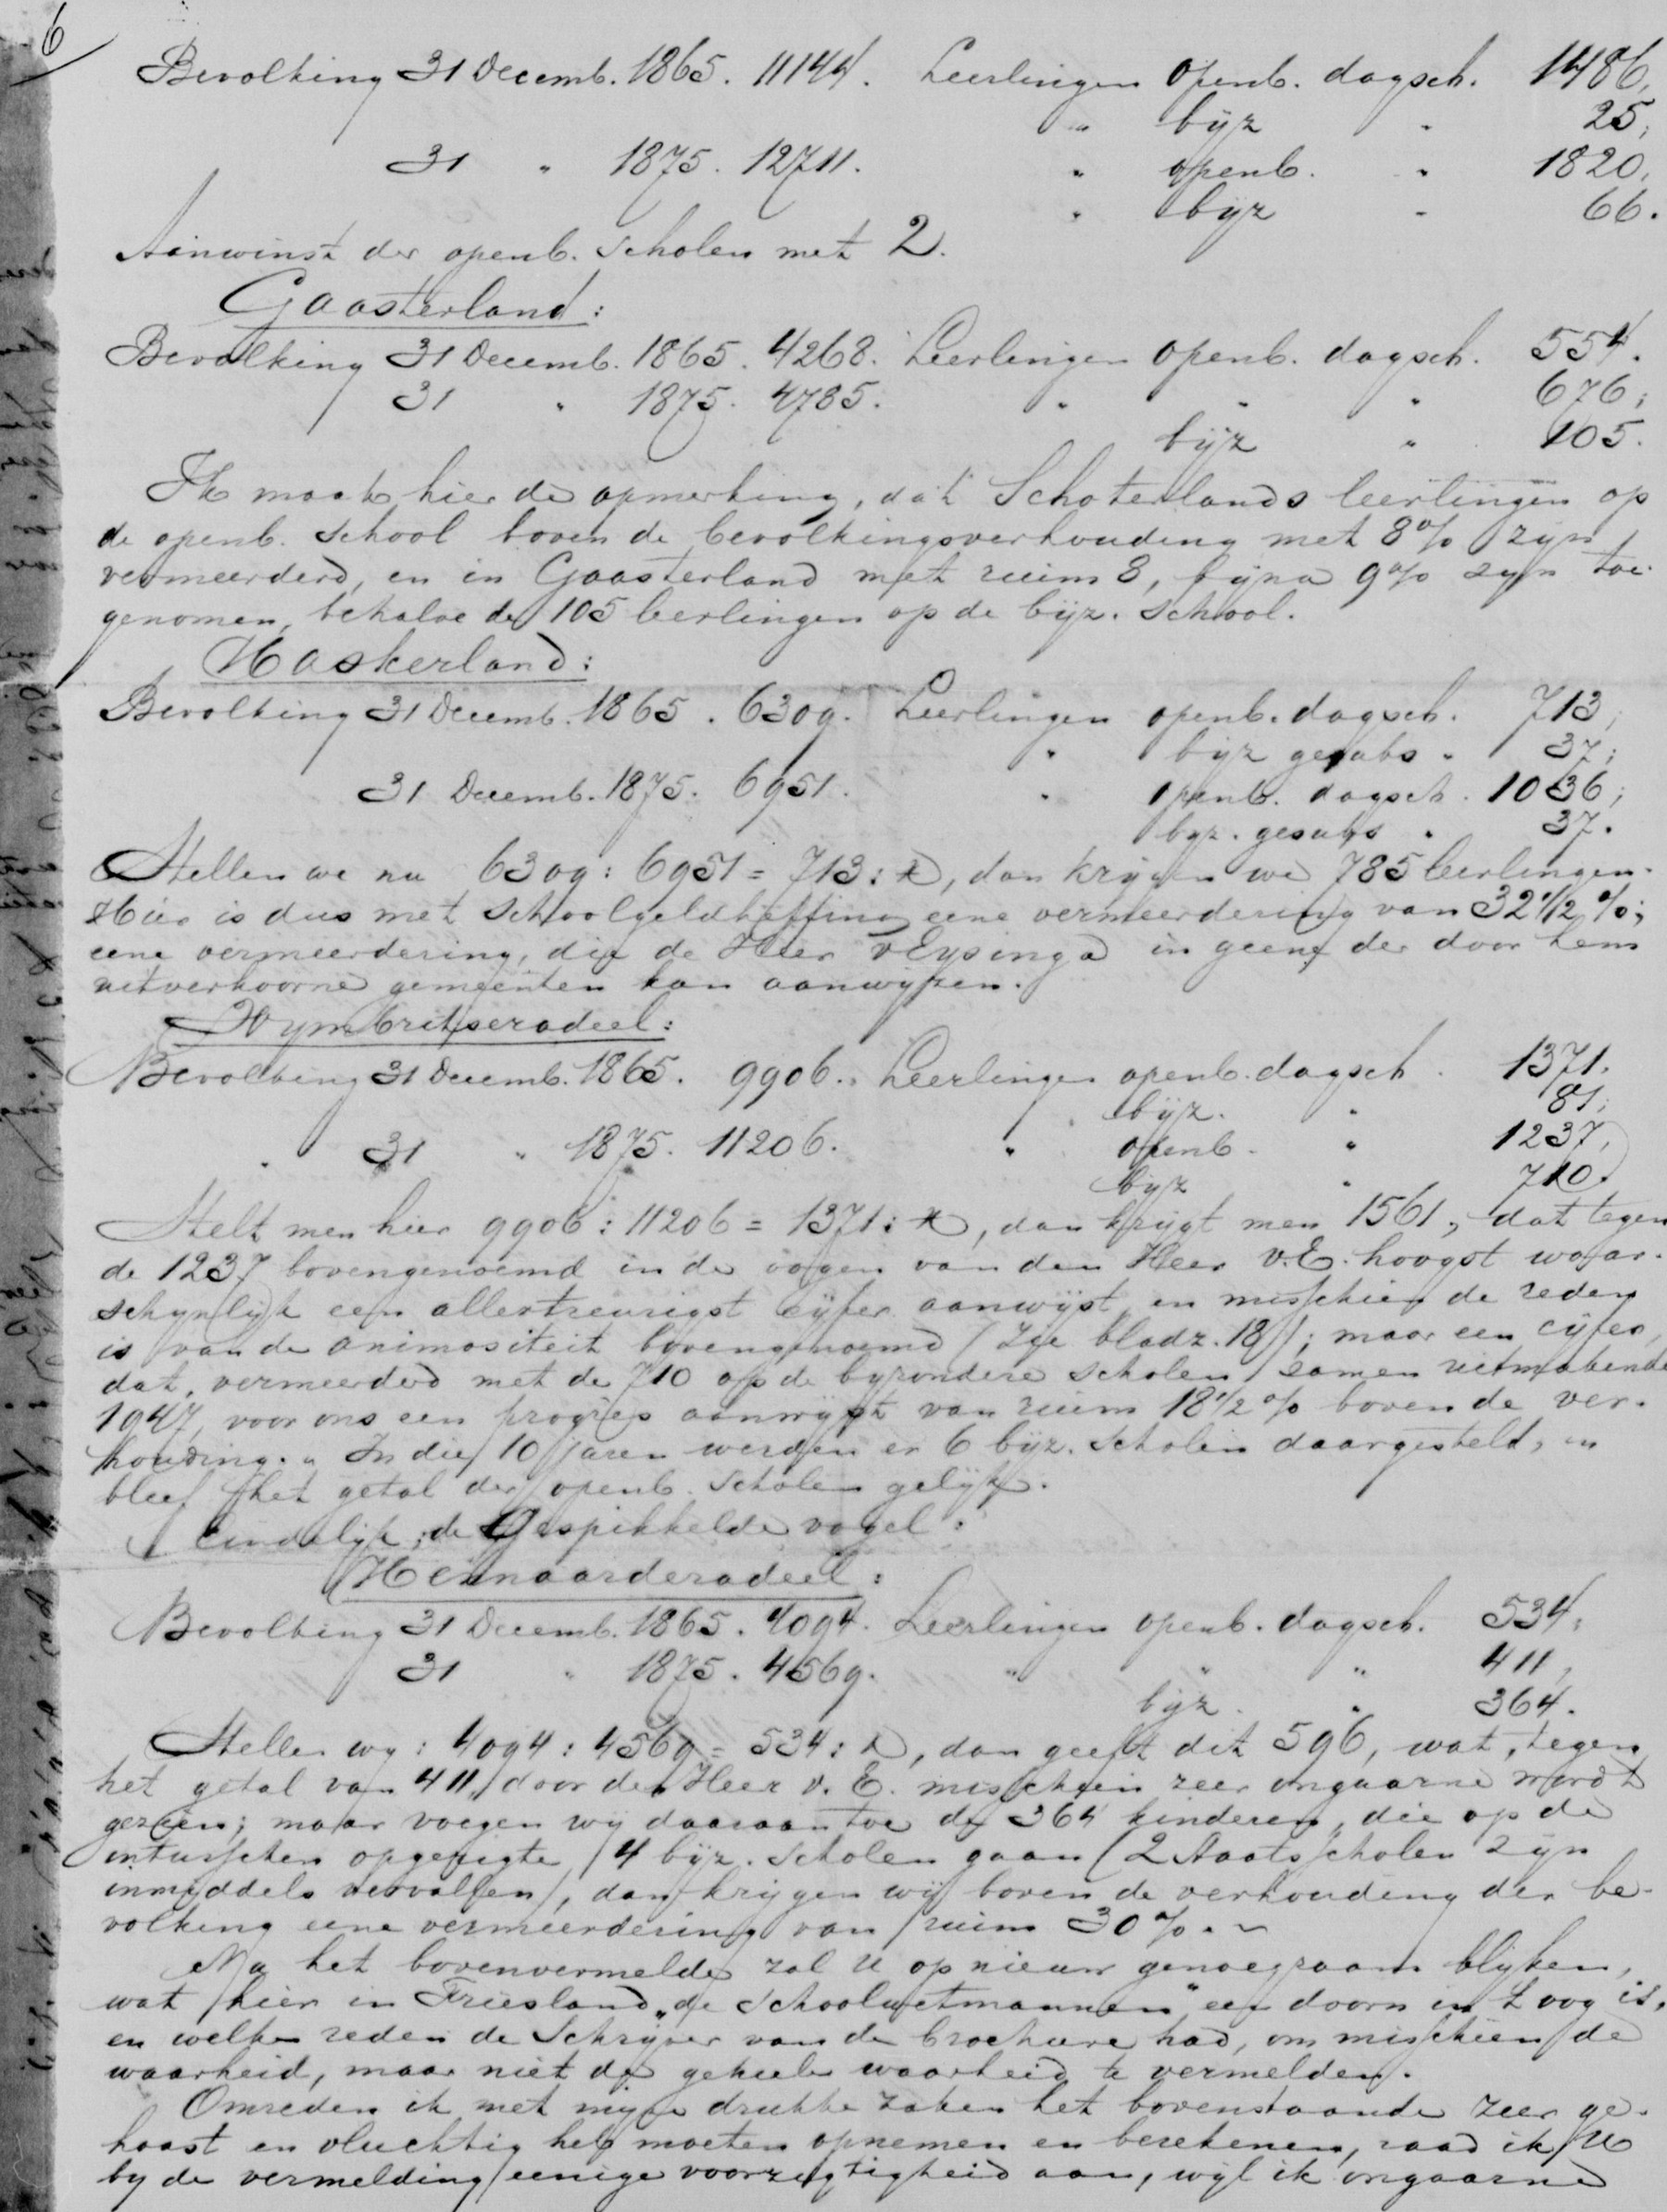 6
Bevolking 31 Decemb. 1865. 11144. Leerlingen openb. dagsch. 1486,
" bijz " 25;
31 " 1875. 12711. " openb. " 1820,
" bijz " 66.
Aanwinst der openb. scholen met 2.
Gaasterland:
Bevolking 31 Decemb. 1865. 4268. Leerlingen openb. dagsch. 554.
31 " 1875. 4785. " " " 676;
bijz " 105.
Ik maak hier de opmerking, dat Schoterlands leerlingen op
de openb. school boven de bevolkingsverhouding met 8% zijn
vermeerderd, en in Gaasterland met ruim 8, bijna 9% zyn toe-
genomen, behalve de 105 leerlingen op de bijz. school.
Haskerland:
Bevolking 31 Decemb. 1865. 6309. Leerlingen openb. dagsch. 713,
" bijz gesubs " 37;
31 Decemb. 1875. 6951. " openb. dagsch. 1036;
byz. gesubs " 37.
Stellen we nu 6309 : 6951 = 713 : x, dan krygen we 785 leerlingen.
Hier is dus met schoolgeldheffing eene vermeerdering van 32 1/2 %;
eene vermeerdering, die de Heer v Eysinga in geene der door hem
uitverkoorne gemeenten kan aanwyzen.
Wymbritseradeel:
Bevolking 31 Decemb. 1865. 9906. Leerlingen openb. dagsch. 1371.
" bijz. " 81;
" 31 " 1875. 11206. " openb. " 1237,
bijz " 710.
Stelt men hier 9906 : 11206 = 1371 : x, dan krijgt men 1561, dat tegen
de 1237 bovengenoemd in de oogen van den Heer v. E. hoogst waar-
schynlyk een allertreurigst cijfer aanwijst en misschien de reden
is van de animositeit bovengenoemd (zie bladz. 18); maar een cijfer,
dat, vermeerderd met de 710 op de byzondere scholen, samen uitmakende
1947, voor ons een progres aanwijst van ruim 18 1/2 % boven de ver-
houding. " In die 10 jaren werden er 6 bijz. scholen daargesteld, en
bleef het getal der openb. scholen gelijk.
Eindelijk, de Gespikkelde vogel:
Hennaarderadeel:
Bevolking 31 Decemb. 1865. 4094. Leerlingen openb. dagsch. 534;
31 " 1875. 4569. " " " 411,
bijz. " 364.
Stellen wy: 4094 : 4569 = 534 : x, dan geeft dit 596, wat, tegen
het getal van 411, door den Heer v. E. misschien zeer ongaarne wordt
gezien; maar voegen wy daaraan toe de 364 kinderen, die op de
intusschen opgerigte 4 bijz. scholen gaan (2 Staatsscholen zijn
inmiddels vervallen), dan krijgen wij boven de verhouding der be-
volking eene vermeerdering van ruim 30%. ~
Na het bovenvermelde zal U op nieuw genoegzaam blijken,
wat hier in Friesland "de Schoolwetmannen" een doorn in 't oog is,
en welke reden de Schrijver van de brochure had, om misschien de
waarheid, maar niet de geheele waarheid te vermelden.
Omreden ik met mijne drukke zaken het bovenstaande zeer ge-
haast en vluchtig heb moeten opnemen en berekenen, raad ik U
by de vermelding eenige voorzigtigheid aan, wijl ik ongaarne